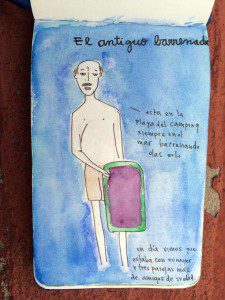 El antiguo barrenado
- esta en la
playa del camping
siempre en el
mar barrenando
olas
un dia vimos que
estaba con su mujer
y tres parejas mas
de amigos de su edad